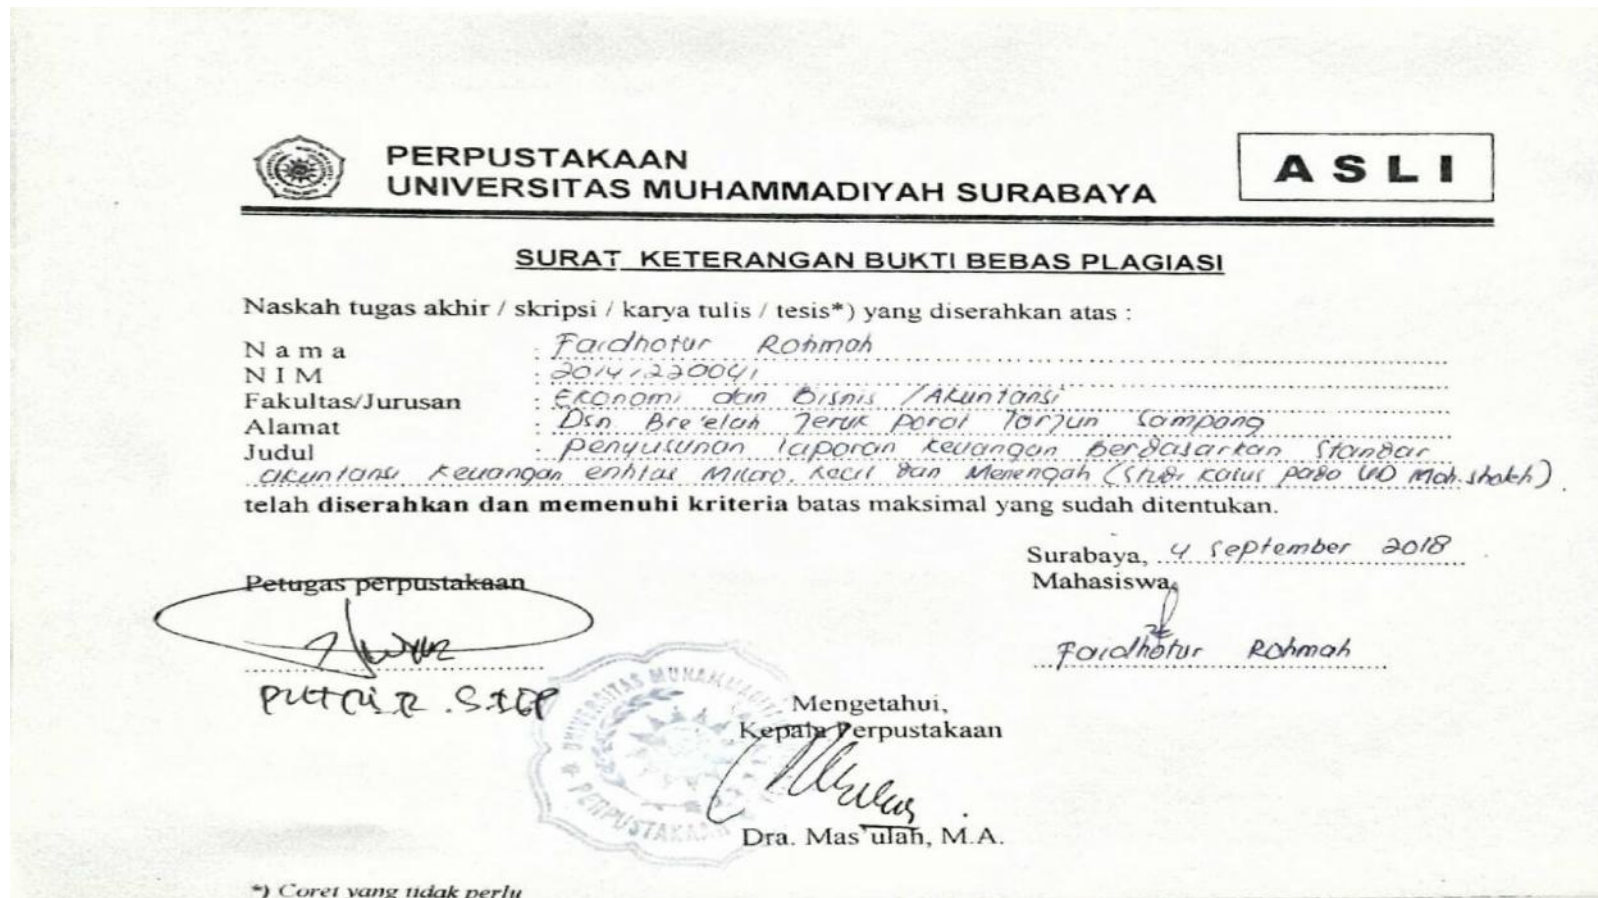 PERPUSTAKAAN
UNIVERSITAS MUHAMMADIYAH SURABAYA
ASLI
SURAT KETERANGAN BUKTI BEBAS PLAGIASI
Naskah tugas akhir / skripsi / karya tulis / tesis*) yang diserahkan atas :
Nama : Faidhotur Rohmah
NIM : 20141220041
Fakultas/Jurusan : Ekonomi dan Bisnis / Akuntansi
Alamat : Dsn Bre'elah Jeruk Porot Torjun Sampang
Judul : Penyusunan laporan keuangan Berdasarkan Standar
akuntansi keuangan entitas Mikro, Kecil dan Menengah (Studi Kasus pada UD Moh. Sholeh)
telah diserahkan dan memenuhi kriteria batas maksimal yang sudah ditentukan.
Surabaya, 4 September 2018
Petugas perpustakaan
Mahasiswa,
Faidhotur Rohmah
UNIVERSITAS MUHAMMADIY
PERPUSTAKAAN
Mengetahui,
Kepala Perpustakaan
Dra. Mas'ulah, M.A.
*) Coret yang tidak perlu